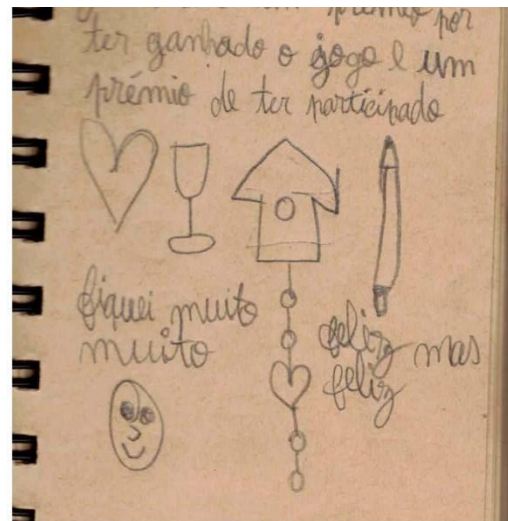 um prémio por
ter ganhado o jogo e um
prémio de ter participado
fiquei muito feliz mas
muito feliz